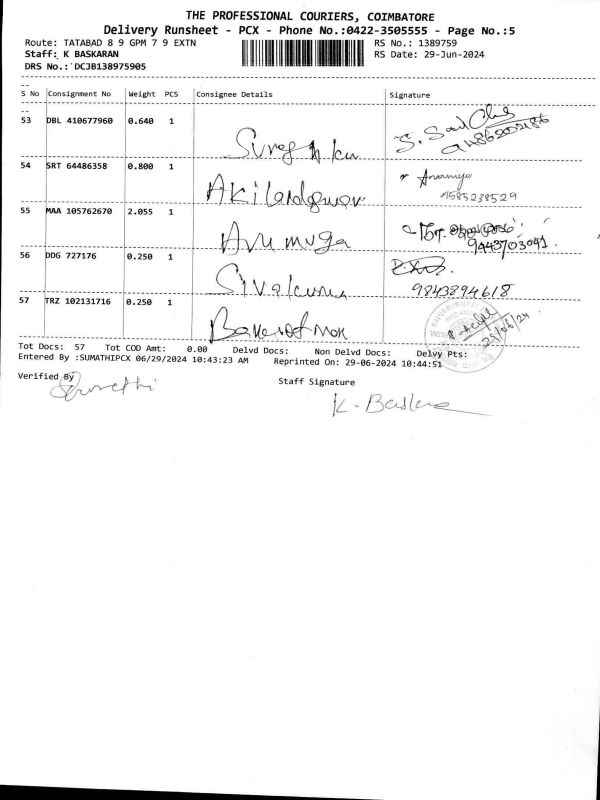 THE PROFESSIONAL COURIERS, COIMBATORE
Delivery Runsheet - PCX - Phone No.:0422-3505555 - Page No.:5
Route: TATABAD 8 9 GPM 7 9 EXTN RS No.: 1389759
Staff: K BASKARAN RS Date: 29-Jun-2024
DRS No.: DCJB138975905
S No Consignment No Weight PCS Consignee Details Signature
53 DBL 410677960 0.640 1
54 SRT 64486358 0.800 1
9585238529
55 MAA 105762670 2.055 1 Arumuga
9443703041
56 DDG 727176 0.250 1
9843894618
57 TRZ 102131716 0.250 1
29/06/24
Tot Docs: 57 Tot COD Amt: 0.00 Delvd Docs: Non Delvd Docs: Delvy Pts:
Entered By :SUMATHIPCX 06/29/2024 10:43:23 AM Reprinted On: 29-06-2024 10:44:51
Verified By
Staff Signature